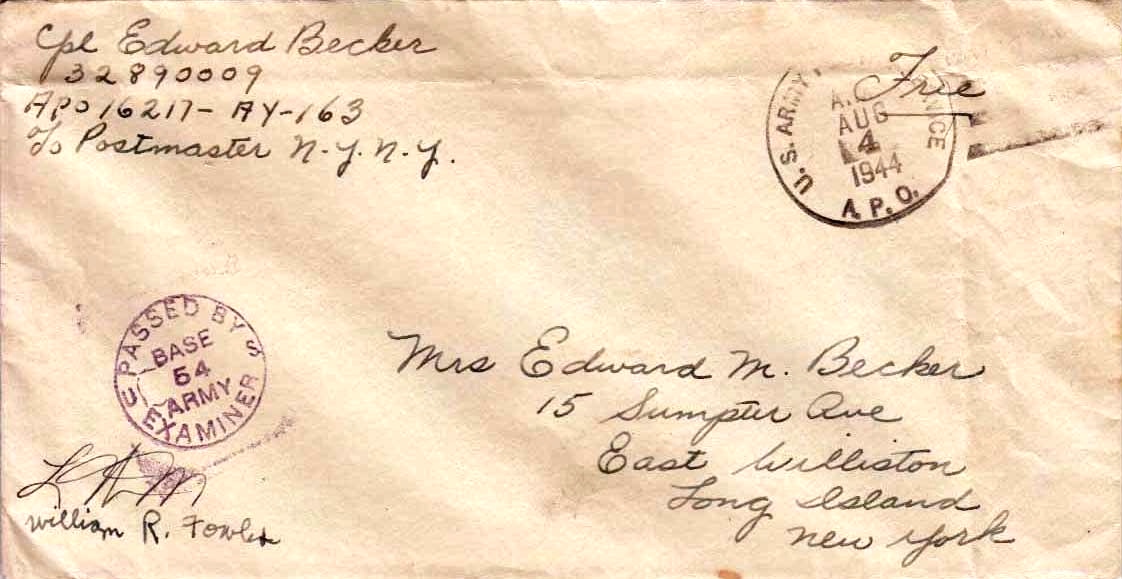 Cpl Edward Becker
32890009
APO 16217-AY-163
c/o Postmaster N.Y. N.Y.
Free
U.S. ARMY
AUG
4
1944
A.P.O.
PASSED BY
BASE
54
ARMY
EXAMINER
U S
William R. Fowler
Mrs Edward M. Becker
15 Sumpter Ave
East Williston
Long Island
New York